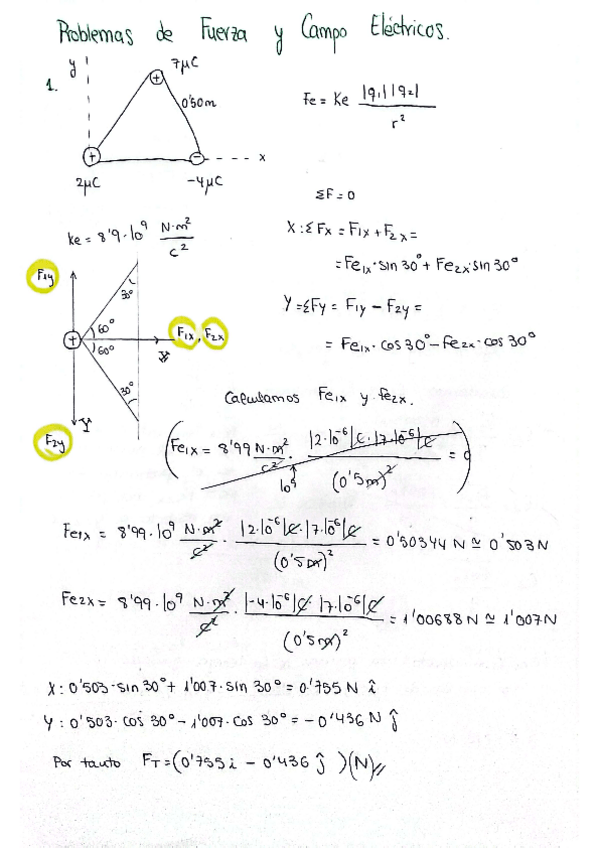 Problemas de Fuerza y Campo Eléctricos.
1.
y
7μC
0'50m
x
2μC
-4μC
Fe = Ke |q1||q2| / r²
ΣF = 0
Ke = 8'9·10⁹ N·m² / C²
X: ΣFx = F1x + F2x =
= Fe1x · sin 30° + Fe2x · sin 30°
Y = ΣFy = F1y - F2y =
= Fe1x · cos 30° - Fe2x · cos 30°
F1y
30°
60°
F1x, F2x
60°
30°
F2y
Calculamos Fe1x y fe2x.
(Fe1x = 8'99 N·m² / C² · |2·10⁻⁶|C·|7·10⁻⁶|C / (0'5m)² = 0)
10⁹
Fe1x = 8'99·10⁹ N·m² / C² · |2·10⁻⁶|C·|7·10⁻⁶|C / (0'5m)² = 0'50344 N ≃ 0'503N
Fe2x = 8'99·10⁹ N·m² / C² · |-4·10⁻⁶|C |7·10⁻⁶|C / (0'5m)² = 1'00688 N ≃ 1'007N
X: 0'503·sin 30° + 1'007·sin 30° = 0'755 N î
Y: 0'503·cos 30° - 1'007·cos 30° = -0'436 N ĵ
Por tanto FT = (0'755i - 0'436 ĵ )(N)//